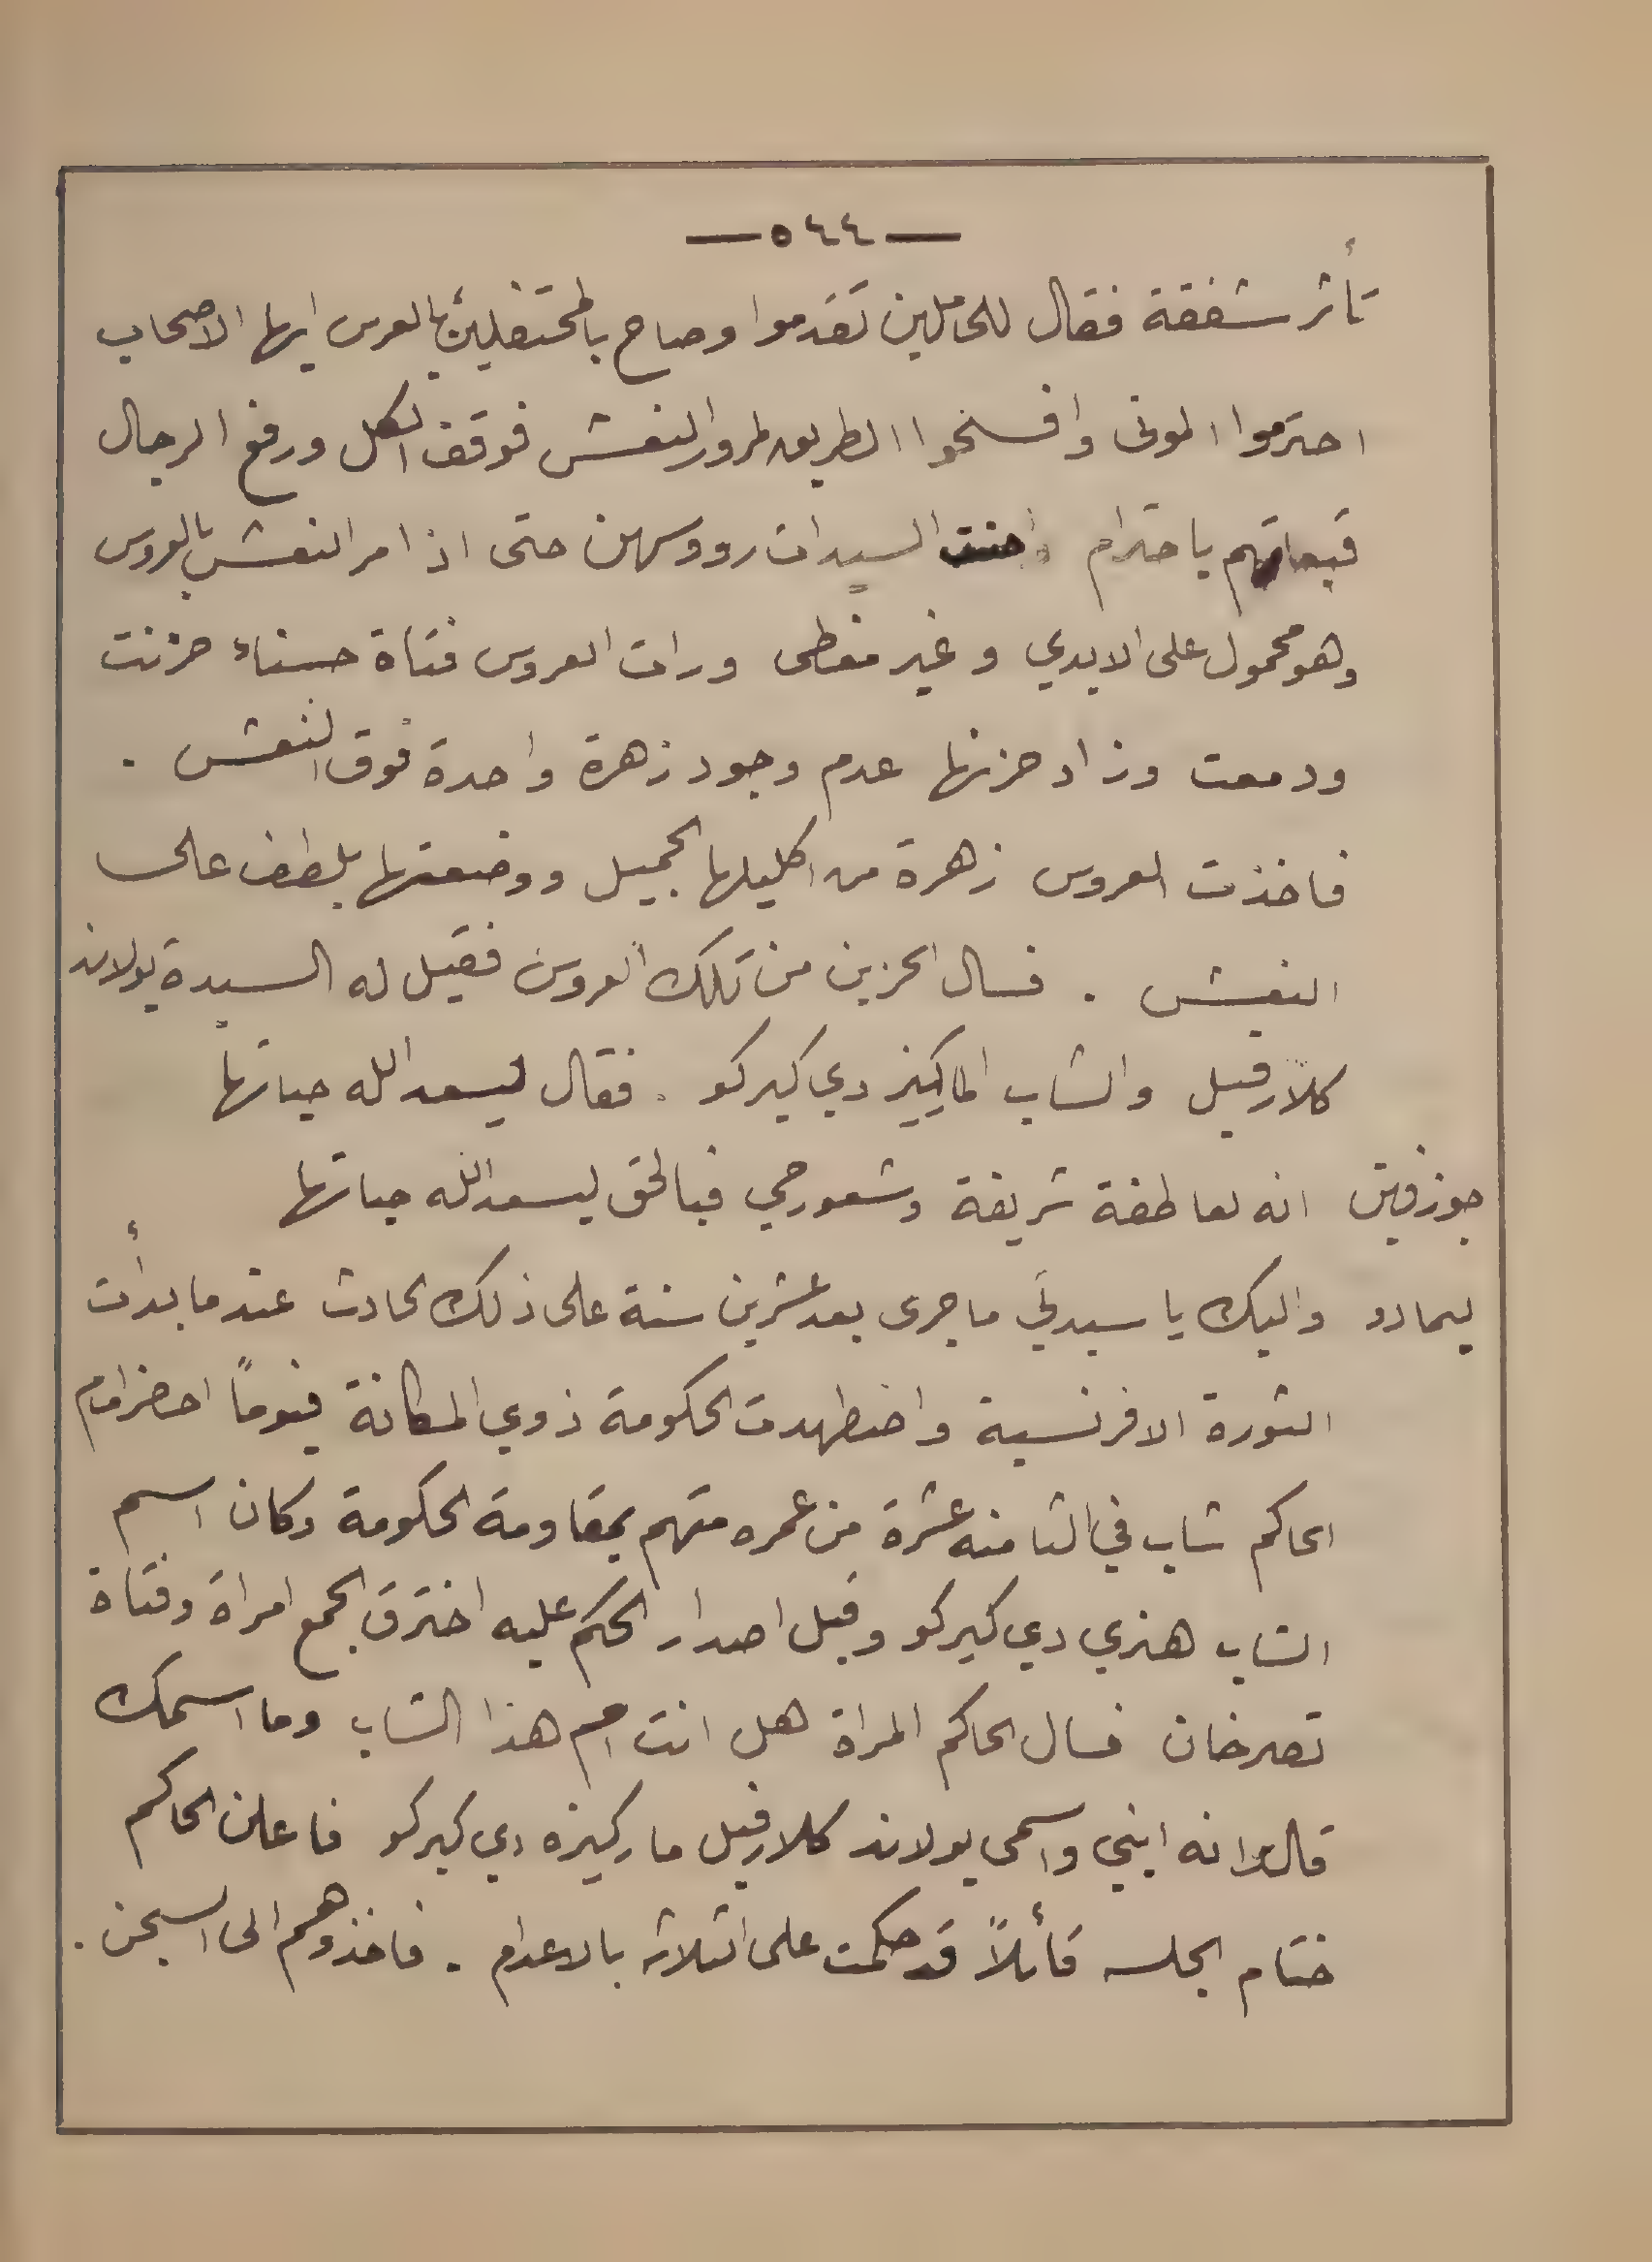 — ٥٤٤ —
تأثر شفقة فقال للحاملين تقدموا وصاح بالمحتفلين بالعرس ايها الاصحاب
احترموا الموتى وافسحوا الطريق لمرور النعش فوقف الكل ورفع الرجال
قبعاتهم باحترام واحنت السيدات رووسهن حتى اذا مر النعش بالعروس
وهو محمول على الايدي وغير مغطى ورات العروس فتاة حسناء حزنت
ودمعت وزاد حزنها عدم وجود زهرة واحدة فوق النعش .
فاخذت العروس زهرة من اكليلها الجميل ووضعتها بلطف على
النعش . فسال الحزين من تلك العروس فقيل له السيدة يولاند
كلارفيل والشاب الماركيز دي كيركو . فقال ليسعد الله حياتها
جوزفين انه لعاطفة شريفة وشعور حي فبالحق ليسعد الله حياتها
ليمادو واليك يا سيدتي ما جرى بعد عشرين سنة على ذلك الحادث عندما بدأت
الثورة الافرنسية واضطهدت الحكومة ذوي المكانة فيوماً احضر امام
الحاكم شاب في الثامنه عشرة من عمره متهم بمقاومة الحكومة وكان اسم
الشاب هنري دي كيركو وقبل اصدار الحكم عليه اخترق الجمع امراة وفتاة
تصرخان فسال الحاكم المراة هل انت ام هذا الشاب وما اسمك
قالت انه ابني واسمي يولاند كلارفيل ماركيزه دي كيركو فاعلن الحاكم
ختام الجلسه قأئلاً قد حكمت على الثلاثه بالاعدام . فاخذوهم الى السجن .